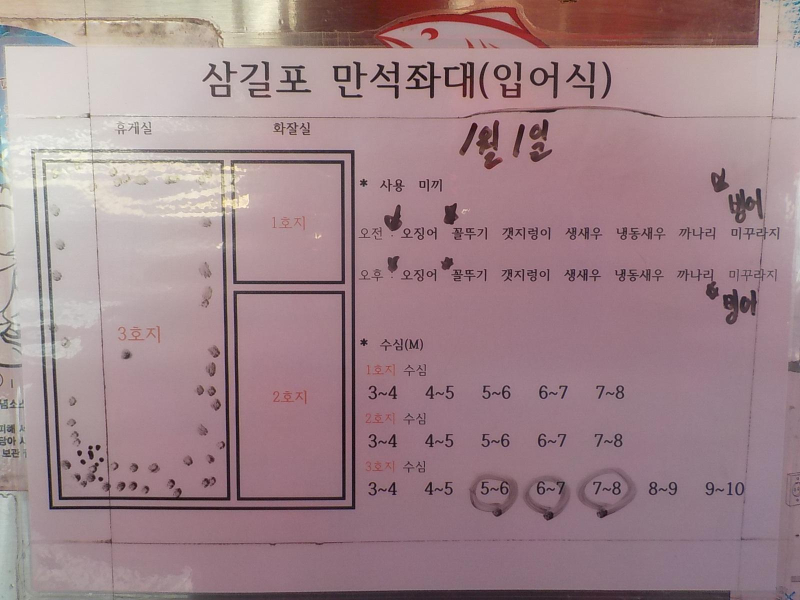 삼길포 만석좌대(입어식)
휴게실 화잘실
1월 1일
* 사용 미끼
빙어
오전 : 오징어 꼴뚜기 갯지렁이 생새우 냉동새우 까나리 미꾸라지
1호지
오후 : 오징어 꼴뚜기 갯지렁이 생새우 냉동새우 까나리 미꾸라지
빙어
3호지
* 수심(M)
1호지 수심
3~4 4~5 5~6 6~7 7~8
2호지
2호지 수심
3~4 4~5 5~6 6~7 7~8
3호지 수심
3~4 4~5 5~6 6~7 7~8 8~9 9~10